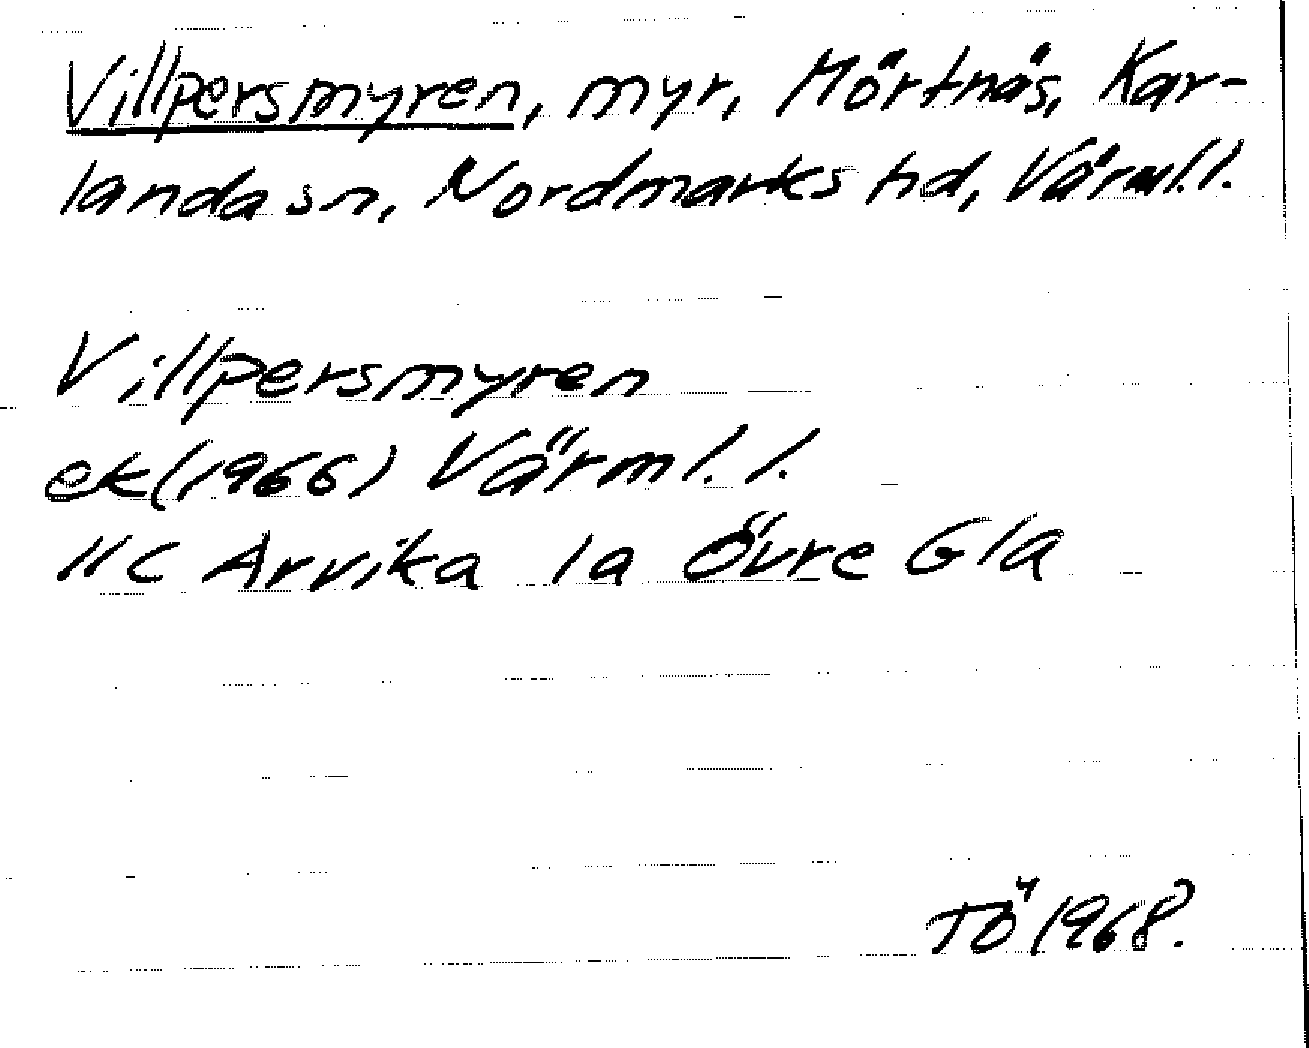 Villpersmyren, myr, Mörtnäs, Kar-
landa sn, Nordmarks hd, Värml.l.
Villpersmyren
ek(1966) Värml.l.
11C Arvika 1a Övre Gla
TÖ 1968.